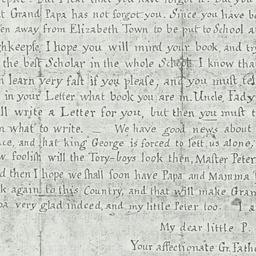 that I have you forgot it. But you
at Grand Papa has not forgot you. Since you have be
en away from Elizabeth Town to be put to School a
ghkeepse, I hope you will mind your book, and try
the best Scholar in the whole School. I know tha
n learn very fast if you please, and you must tel
in your Letter what book you are in. Uncle Fady
ll write a Letter for you, but then you must t
m what to write. — We have good news about
ce, and that king George is forced to lett us alone,
w foolish will the Tory-boys look then, Master Peter
nd then I hope we shall soon have Papa and Mamma
k again to this Country, and that will make Gran
pa very glad indeed, and my little Peter too. I a
My dear little P
Your affectionate Gr. Fathe